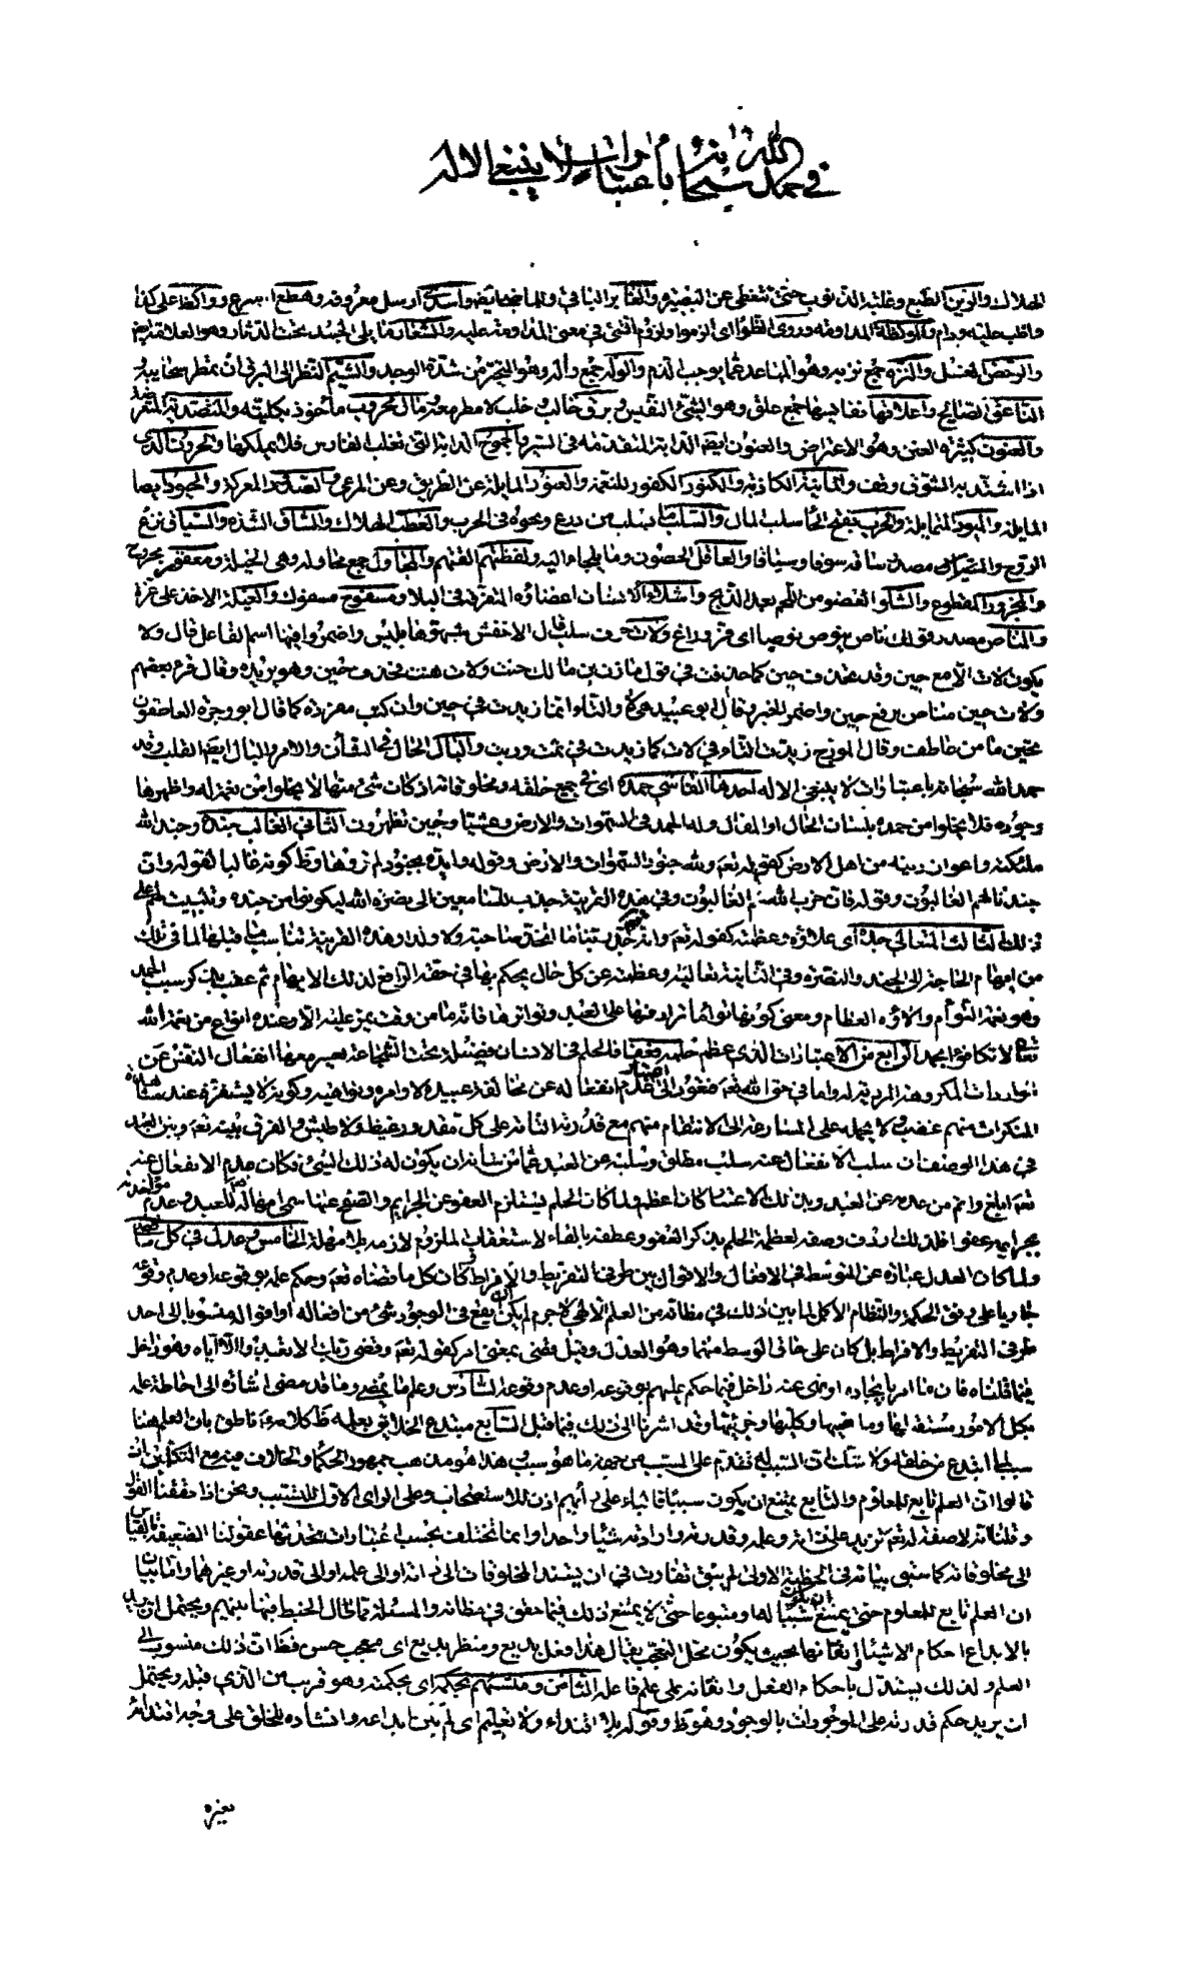 في حمد الله سبحانه باعتبارات لا ينبغي الا له
الهلاك والرين الطبع وغلبة الذنوب حتى تتغطى عن البصيرة والغابر الباقي والماضي ايضا واسدى ارسل معروفه وهطع اسرع وواكظ على كذا
واظب عليه وداوم والوكظة المداومة وروى الظوا اى الزموا ولزوم الشئ في معنى المداومة عليه والشعار ما يلي الجسد تحت الدثار وهو العلامة ايضا
والرحض الغسل والنزه جمع نزيه وهو المباعد عما يوجب الذم والولاه جمع واله وهو المتحير من شدة الوجد والشيم النظر الى البرق ان يمطر سحابه
الناعق الصائح واعلاقها نفايسها جمع علق وهو الشئ النفيس وبرق خالب وخلب لا مطر معه ومال محروب مأخوذ بكليته والمتصدية المتعرضة
والعنون كثيرة العنن وهو الاعتراض والعنون ايضا الدابة المتقدمة في السير والجموح الدابة التي تغلب الفارس فلا يملكها والحرون الذي
اذا اشتد به السوق وقف والماينة الكاذبة والكنود الكفور للنعمة والعنود المايلة عن الطريق وعن المرعى والصدود المعرضة والحيود ايضا
المايلة والميود المتمايلة والحرب بفتح الحاء سلب المال والسلب ما يسلب من درع ونحوه في الحرب والعطب الهلاك والساق الشدة والسياق نزع
الروح والسياق مصدر ساقه سوقا وسياقا والمعاقل الحصون وما يلجاء اليه ولفظتهم القتهم والمحاول جمع محاولة وهي الحيلة ومعقور مجروح
والمجزور المقطوع والشلو العضو من اللحم بعد الذبح واشلاء الانسان اعضاؤه المتفرقة في البلاء ومسفوح مسفوك والغيلة الاخذ على غرة
والمناص مصدر قولك ناص ينوص نوصا اى فر وراغ ولات حرف سلب قال الاخفش شبهوها بليس واضمروا فيها اسم الفاعل قال ولا
يكون لات الا مع حين وقد تحذف حين كما حذفت في قول مازن بن مالك حنت ولات هنت فحذف حين وهو يريده وقال قرء بعضهم
ولات حين مناص برفع حين واضمر الخبر وقال ابو عبيد هي لا والتاء انما زيدت في حين وان كتب مفردة كما قال ابو وجزة العاطفون
تحين ما من عاطف وقال المورج زيدت التاء في لات كما زيدت في ثمت وربت والبال الحال والشأن والامر والبال ايضا القلب وقد
حمد الله سبحانه باعتبارات لا ينبغي الا له احدها الفاشي حمده اى في جميع خلقه ومخلوقاته اذ كان شئ منها لا يخلوا من نعمة له واظهرها
وجوده فلا يخلوا من حمده بلسان الحال او المقال وله الحمد في السموات والارض وعشيا وحين تظهرون الثاني الغالب جنده وجند الله
ملئكته واعوان دينه من اهل الارض كقوله تع ولله جنود السموات والارض وقوله وايده بجنود لم تروها وظ كونه غالبا لقوله وان
جندنا لهم الغالبون وقوله فان حزب الله هم الغالبون وفي هذه القرينة جذب للسامعين الى نصرة الله ليكونوا من جنده وتثبيت لهم على
ذلك الثالث المتعالي جده اى علاؤه وعظمته كقوله تع وانه تعالى جد ربنا ما اتخذ صاحبة ولا ولدا وهذه القرينة تناسب ما قبلها لما في تلك
من ايهام الحاجة الى الجند والنصرة وفي الثانية تعاليه وعظمته عن كل حال يحكم بها في حقه الرافع لذلك الايهام ثم عقب بذكر سبب الحمد
وهو نعمه التوأم والاؤه العظام ومعنى كونها تواما ترادفها على العبد وتواترها فانه ما من وقت يمر عليه الا وعنده انواع من نعمة الله
تعالى لا تكافؤها بحمد الرابع من الاعتبارات الذي عظم حلمه فعفا فالحلم في الانسان فضيلة تحت الشجاعة يعسر معها انفعال النفس عن
الواردات المكروهة المؤذية له واما في حق الله تع فتعود الى اعتبار عدم انفعاله عن مخالفة عبيده لاوامره ونواهيه وكونه لا يستفزه عند مشاهدة
المنكرات منهم غضب ولا يحمله على المسارعة الى الانتقام منهم مع قدرته التامة على كل مقدور غيظ ولا طيش والفرق بينه تع وبين العبد
في هذا الوصف ان سلب الانفعال عنه سلب مطلق وسلبه عن العبد عما من شانه ان يكون له ذلك الشئ فكان عدم الانفعال عنه
تع ابلغ واتم من عدمه عن العبد وبذلك الاعتبار كان اعظم ولما كان الحلم يستلزم العفو عن الجرايم والصفح عنها سمى امهاله تع للعبد وعدم مؤاخذته
بجرايمه عفوا فلذلك اردف وصفه لعظمة الحلم بذكر العفو وعطفه بالفاء لاستعقاب الملزوم لازمه بلا مهلة الخامس وعدل في كل ما قضى
ولما كان العدل عبارة عن التوسط في الافعال والاقوال بين طرفي التفريط والافراط وكان كل ما قضاه تع وحكم عليه بوقوعه او عدم وقوعه
جاريا على وفق الحكمة والنظام الاكمل لما بين ذلك في مظانه من العلم الالهي لا جرم لم يكن ان يقع في الوجود شئ من افعاله او اقواله منسوبا الى احد
طرفي التفريط والافراط بل كان على حاق الوسط منهما وهو العدل وقيل قضى بمعنى امر كقوله تع وقضى ربك الا تعبدوا الا اياه وهو داخل
فيما قلناه فان ما امر بايجاده او نهى عنه داخل فيما حكم عليهم بوقوعه او عدم وقوعه السادس وعلم ما يمضي وما قد مضى اشارة الى احاطة علمه
بكل الامور مستقبلها وماضيها وكليها وجزئيها وقد اشرنا الى ذلك فيما قبل السابع مبتدع الخلايق بعلمه ظ كلامه ع ناطق بان العلم هنا
سبب لما ابتدع من خلقه ولا شك ان السبب له تقدم على المسبب من جهة ما هو سبب هذا هو مذهب جمهور الحكماء والخلاف فيه مع المتكلمين اذ
قالوا ان العلم تابع للمعلوم والتابع يمتنع ان يكون سببا فالباء على رأيهم اذن للاستصحاب وعلى الراى الاول للتسبب ونحن اذا حققنا القول
وقلنا انه لا صفة له تع تزيد على ذاته وعلمه وقدرته وارادته شيئا واحدا وانما تختلف بحسب اعتبارات تحدثها عقولنا الضعيفة بالقياس
الى مخلوقاته كما سبق بيانه في الخطبة الاولى لم يبق تفاوت في ان يستند المخلوقات الى ذاته او الى علمه او الى قدرته او غيرهما واما بيان
ان العلم تابع للمعلوم حتى يمتنع ان يكون سببا له او متبوعا حتى لا يمتنع ذلك فيما حقق في مظانه والمسئلة مما طال الخبط فيها بينهم ويحتمل ان يريد
بالابداع احكام الاشياء واتقانها بحيث يكون محل التعجب يقال هذا فعل بديع ومنظر بديع اى معجب حسن فظ ان ذلك منسوب الى
العلم ولذلك يستدل باحكام الفعل واتقانه على علم فاعله الثامن ومنشئهم بحكمه اى بحكمته وهو قريب من الذي قبله ويحتمل
ان يريد حكم قدرته على الموجودات بالوجود وهو ظ وقوله بلا اقتداء ولا تعليم اى لم يكن ابداعه وانشاده للخلق على وجه اقتدائه
بغيره